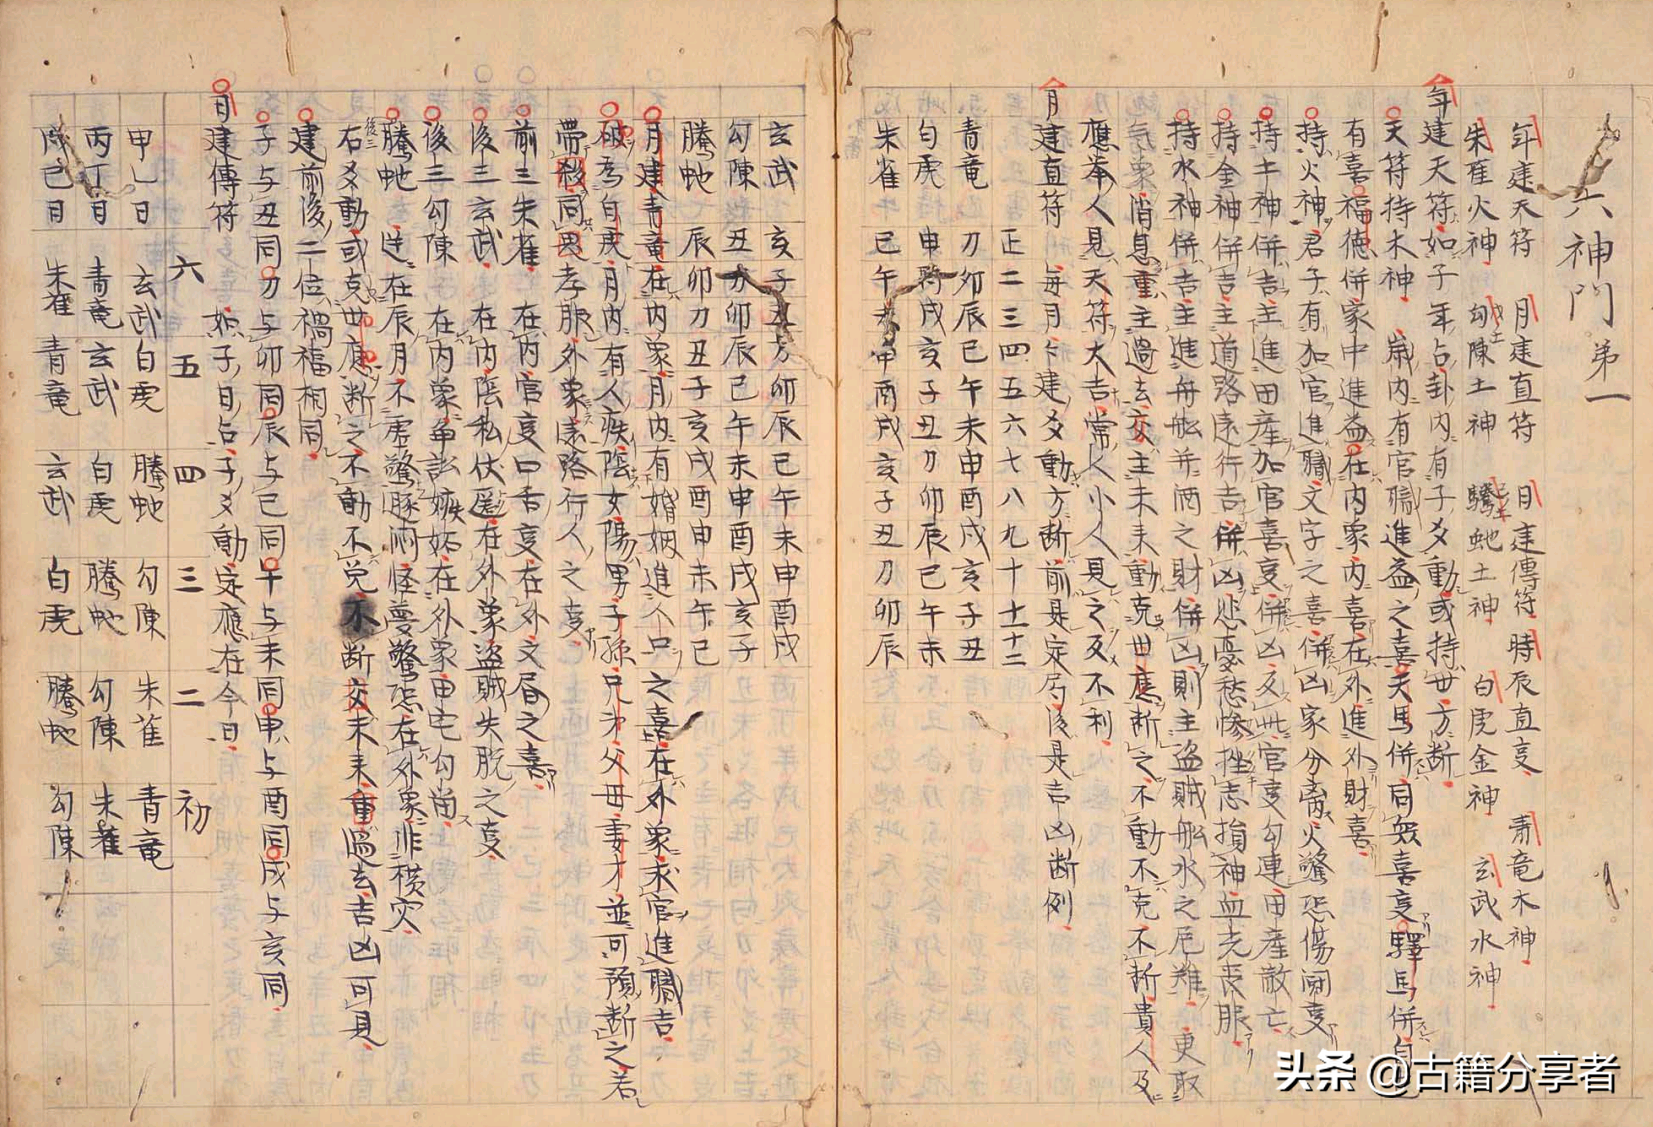 六神門第一
年建天符 月建直符 日建傳符 時辰直变 青竜木神
朱雀火神 勾陳土神 騰虵土神 白虎金神 玄武水神
年建天符如子年占卦内有子爻動或持世方断
天符持木神 歳内有官職進益之喜天馬併同衆喜变驛馬併自
有喜福徳併家中進益在内象内喜在外進外財喜
持火神君子有加官進職文字之喜併凶家分离火驚恐傷開变
持土神併吉主進田産加官喜变併凶 官变勾連田産散亡
持金神併吉主道路遠行吉併凶悲憂愁惨挫志損神血光喪服
持水神併吉主進舟舩并酒之財併凶則主盗賊舩水之厄難更取
気象消息重主過去交主未来動克世應断之不動不克不断貴人及
應挙人見天符大吉常人小人見之反不利
月建直符 毎月卜建爻動方断前是定局後是吉凶断例
正二三四五六七八九十十一十二
青竜 刀卯辰巳午未申酉戌亥子丑
白虎 申酉戌亥子丑刀卯辰巳午未
朱雀 巳午未申酉戌亥子丑刀卯辰
玄武 亥子丑方卯辰巳午未申酉戌
勾陳 丑方卯辰巳午未申酉戌亥子
騰虵 辰卯刀丑子亥戌酉申未午巳
月建青竜在内象月内有婚姻進人口之喜在外象求官進職吉
破為白虎月内有人疾陰女陽男子孫兄弟父母妻才並可預断之若
帶殺同思孝服外象遠路行人之变
前三朱雀 在内官变口舌变在外文唇之喜
後三玄武 在内陰私伏匿在外象盗賊失脱之变
後三勾陳 在内象争訟嫉妬在外象田宅勾尚
騰虵 在辰月不虚驚豚闹怪夢驚恐在外象非横灾
右爻動或克世應断之不動不克不断交未来重過去吉凶可見
建前後二位禍福相同
子与丑同刀与卯同辰与巳同午与未同申与酉同戌与亥同
日建傳符 如子日占子爻動定應在今日
六 五 四 三 二 初
甲乙日 玄武 白虎 騰虵 勾陳 朱雀 青竜
丙丁日 青竜 玄武 白虎 騰虵 勾陳 朱雀
戊己日 朱雀 青竜 玄武 白虎 騰虵 勾陳
头条 @古籍分享者